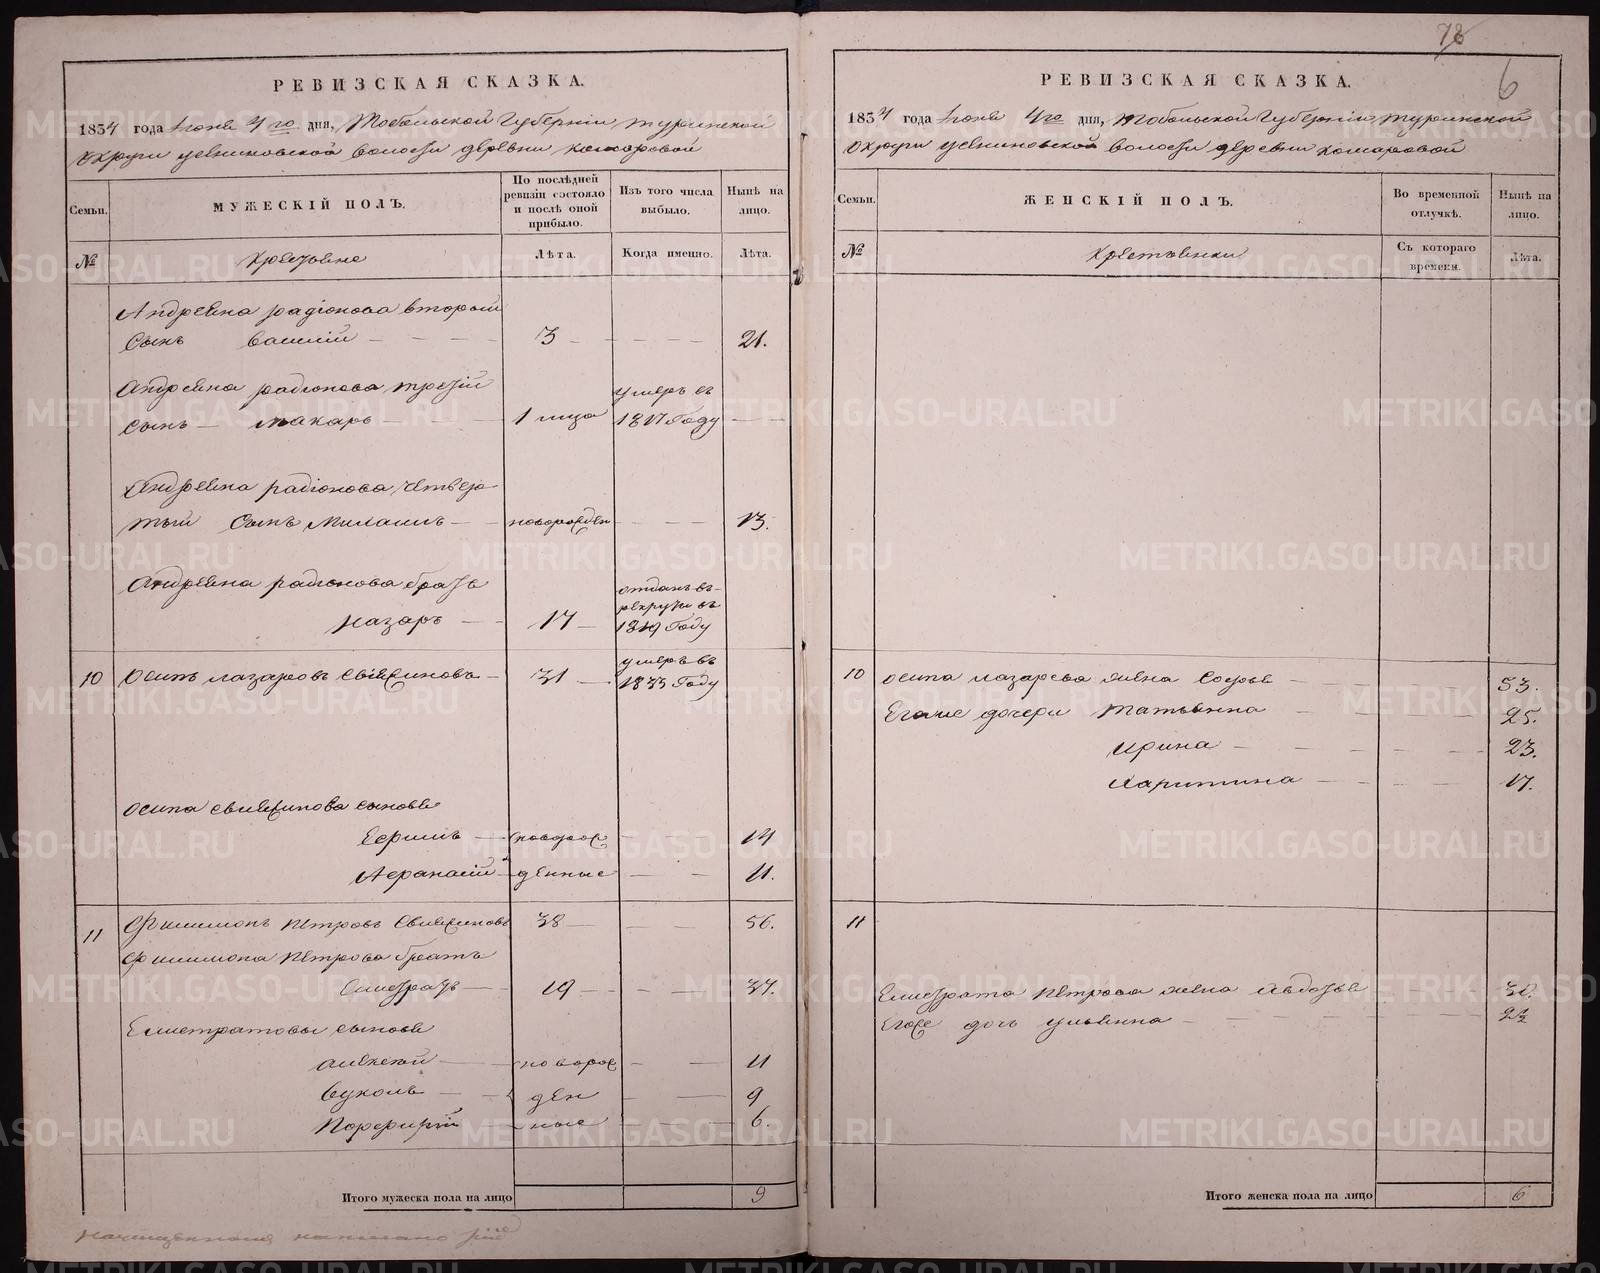 78
6
РЕВИЗСКАЯ СКАЗКА.
1834 года Іюня 4го дни, Тобольской Губерніи Туринской
округи Усениновской волости деревни комаровой
Семьи.
МУЖЕСКІЙ ПОЛЪ.
По послѣдней ревизіи состояло и послѣ оной прибыло.
Изъ того числа выбыло.
Нынѣ на лицо.
№
крестьяне
Лѣта.
Когда именно.
Лѣта.
Андреяна радіонова второй
сынъ василій 3 21.
Андреяна радіонова третій умеръ въ
сынъ макаръ 1 1817 Году
Андреяна радіонова четвер
тый сынъ новорожден 13.
Андреяна радіонова братъ отданъ въ
рекруты въ
назаръ 17 1819 Году
10 осипъ лазаревъ 31 умеръ въ
1833 Году
осипа сыновья
Ефимъ новорож 14
Афанасій денные 11.
11 Филимонъ Петровъ 38 56.
Филимона Петрова братъ
Елистратъ 19 37.
Елистратовы сыновья
алексей новорож 11
Вуколъ ден 9
Порфирій ные 6.
Итого мужеска пола на лицо 9
РЕВИЗСКАЯ СКАЗКА.
1834 года Іюня 4го дня, Тобольской Губерніи Туринской
округи Усениновской волости деревни комаровой
Семьи.
ЖЕНСКІЙ ПОЛЪ.
Во временной отлучкѣ.
Нынѣ на лицо.
№
крестьянки
Съ котораго времени.
Лѣта.
10 осипа лазарева жена Софья 53.
Егоже дочери татьянна 25.
ирина 23.
Харитина 17.
11
Елистрата Петрова жена Авдотья
Егоже дочь ульянна
Итого женска пола на лицо 6
METRIKI.GASO-URAL.RU